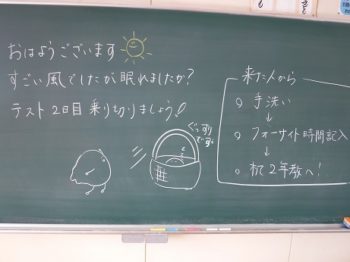 おはようございます
すごい風でしたが眠れましたか?
テスト2日目 乗り切りましょう!
ぐっすり
でーす。
来た人から
○ 手洗い
↓
○ フォーサイト時間記入
↓
○ 机2年教へ!